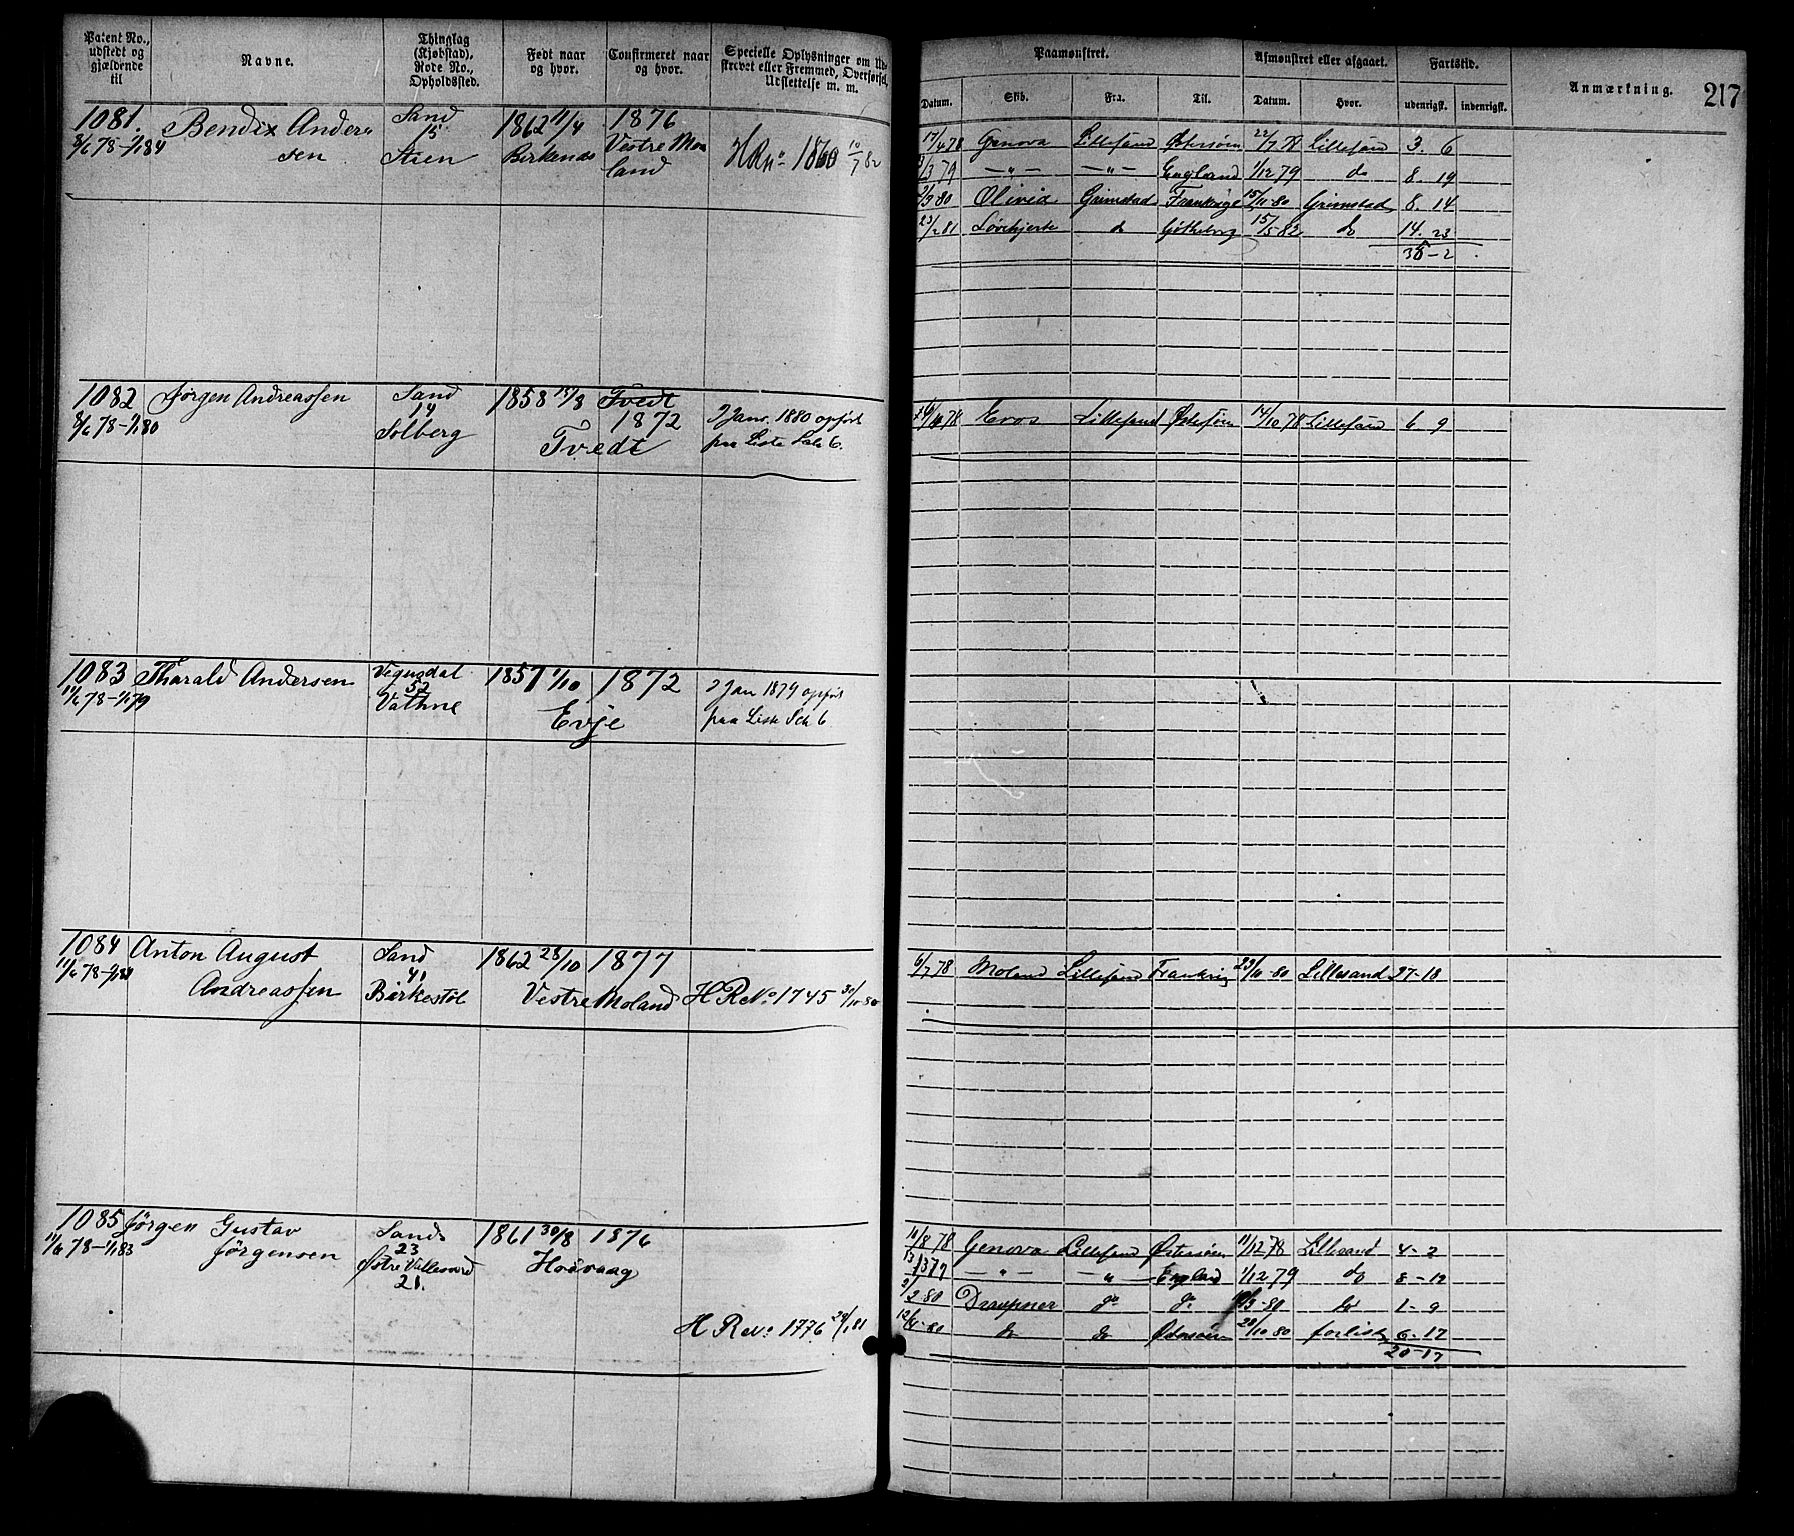 Patent No., udstedt og gjældende til
Navne.
Thinglag (Kjøbstad), Rode No., Opholdssted.
Født naar og hvor.
Confirmeret naar og hvor.
Specielle Oplysninger om Udskrevet eller Fremmed, Overførsel, Udslettelse m. m.
Paamønstret.
Afmønstret eller afgaaet.
Fartstid.
Anmærkning.
217
Datum.
Skib.
Fra.
Til.
Datum.
Hvor.
udenrigsk.
indenrigsk.
1081. Bendix Ander
sen
8/6 78-1/1 84
Sand
15
Stien
1862 11/4
Birkenæs
1876
Vestre Mo
land
HRNo 1860 10/7 82
17/4 78 Genova Lillesand Østersøen 22/7 78 Lillesand 3. 6
3/3 79 -"- -"- England 1/12 79 do 8. 19
2/3 80 Olivia Grimstad Frankrige 15/11-80 Grimstad 8. 14
23/2 81 Løvehjerte do Gøtheborg 15/5 82 do 14. 23
35-2
1082 Jørgen Andreassen
8/6 78-1/1 80
Sand
14
Solberg
1858 18/8 Tvedt
1872
Tvedt
I Janr. 1880 opført
paa Liste Lab 6.
78 Eros Lillesand Østersøen 14/10 78 Lillesand 6 9
1083 Tharald Andersen
11/6 78-1/1 79
Vegusdal
52
Vathne
1857 1/10 1872
Evje
I Jan 1879 opført
paa Liste Sch 6.
1084 Anton August
Andreassen
11/6 78-1/1 84
Sand
41
Birkestøl
1862 28/10 1877
Vestre Moland
HRNo 1745 30/10 80
6/7 78 Moland Lillesand Frankrig 23/10-80 Lillesand 27-18
1085 Jørgen Gustav
Jørgensen
11/6 78-1/1 83
Sand
23
Østre Vallesværd
21.
1861 30/8 1876
Høivaag
HRNo 1776 29/1 81
10/8 78 Genova Lillesand Østersøen 11/12 78 Lillesand 4-2
13/3 79 -"- -"- England 1/12 79 do 8-19
2/2-80 Draupner do do 3-80 do 1-9
12/4-80 do do Østersøen 28/10 80 forlist 6-17
20-17